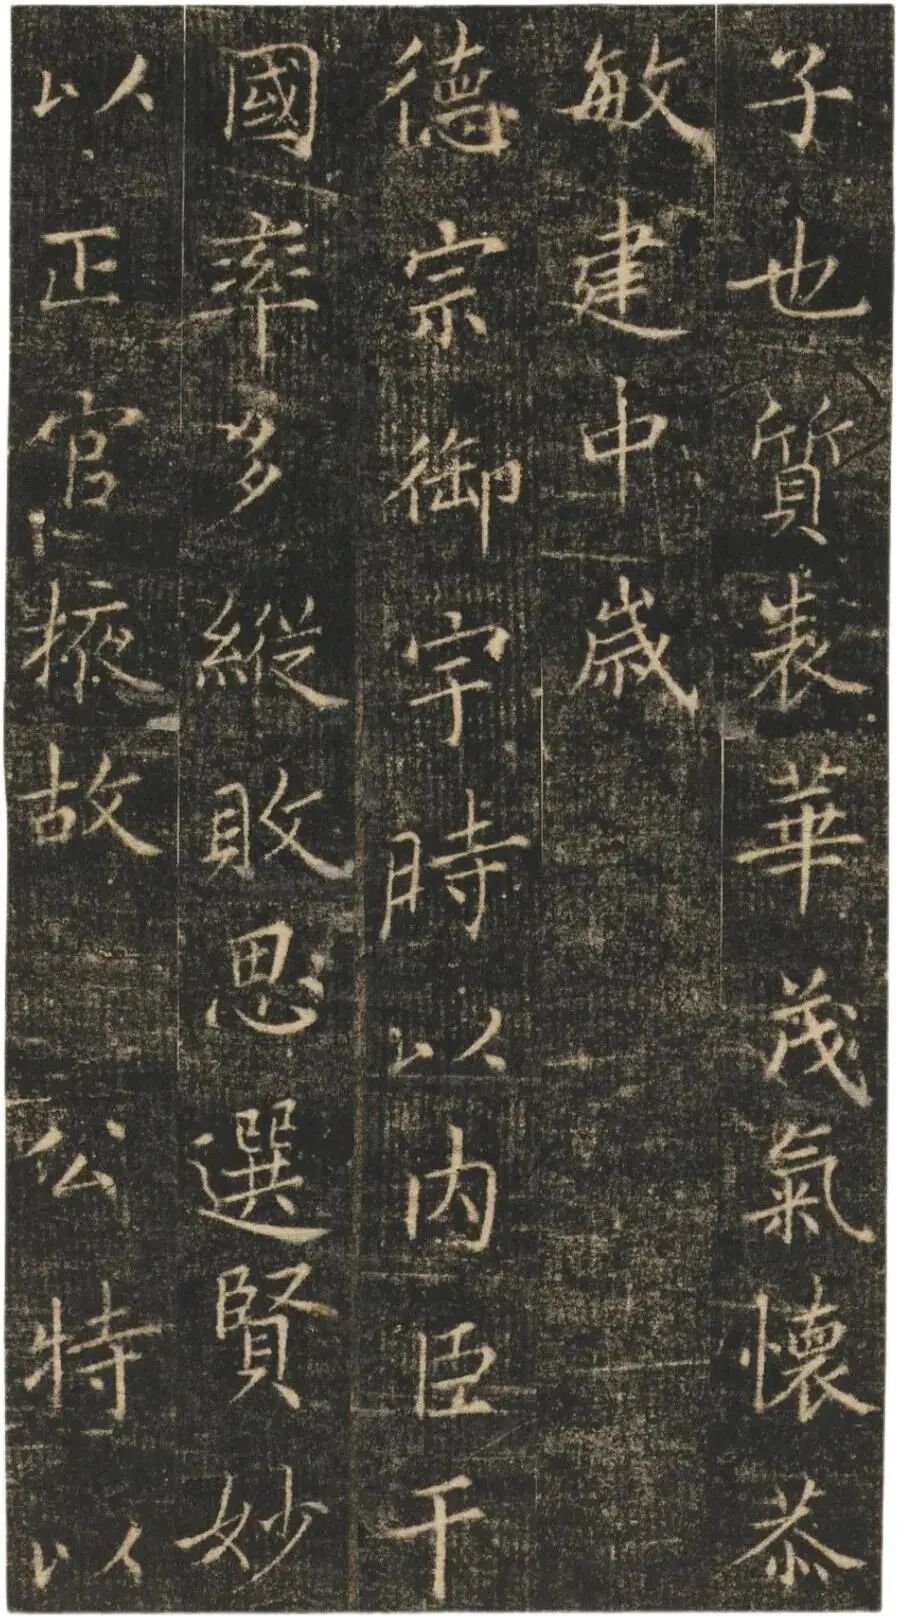 子也質表華茂氣懷恭
敏建中歲
德宗御宇時以內臣干
國率多縱敗思選賢妙
以正官掖故公特以